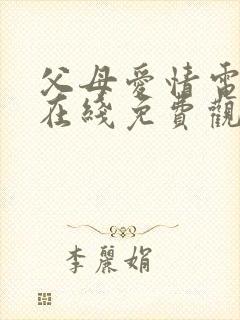 父母愛情電
在綫免費觀
李麗娟